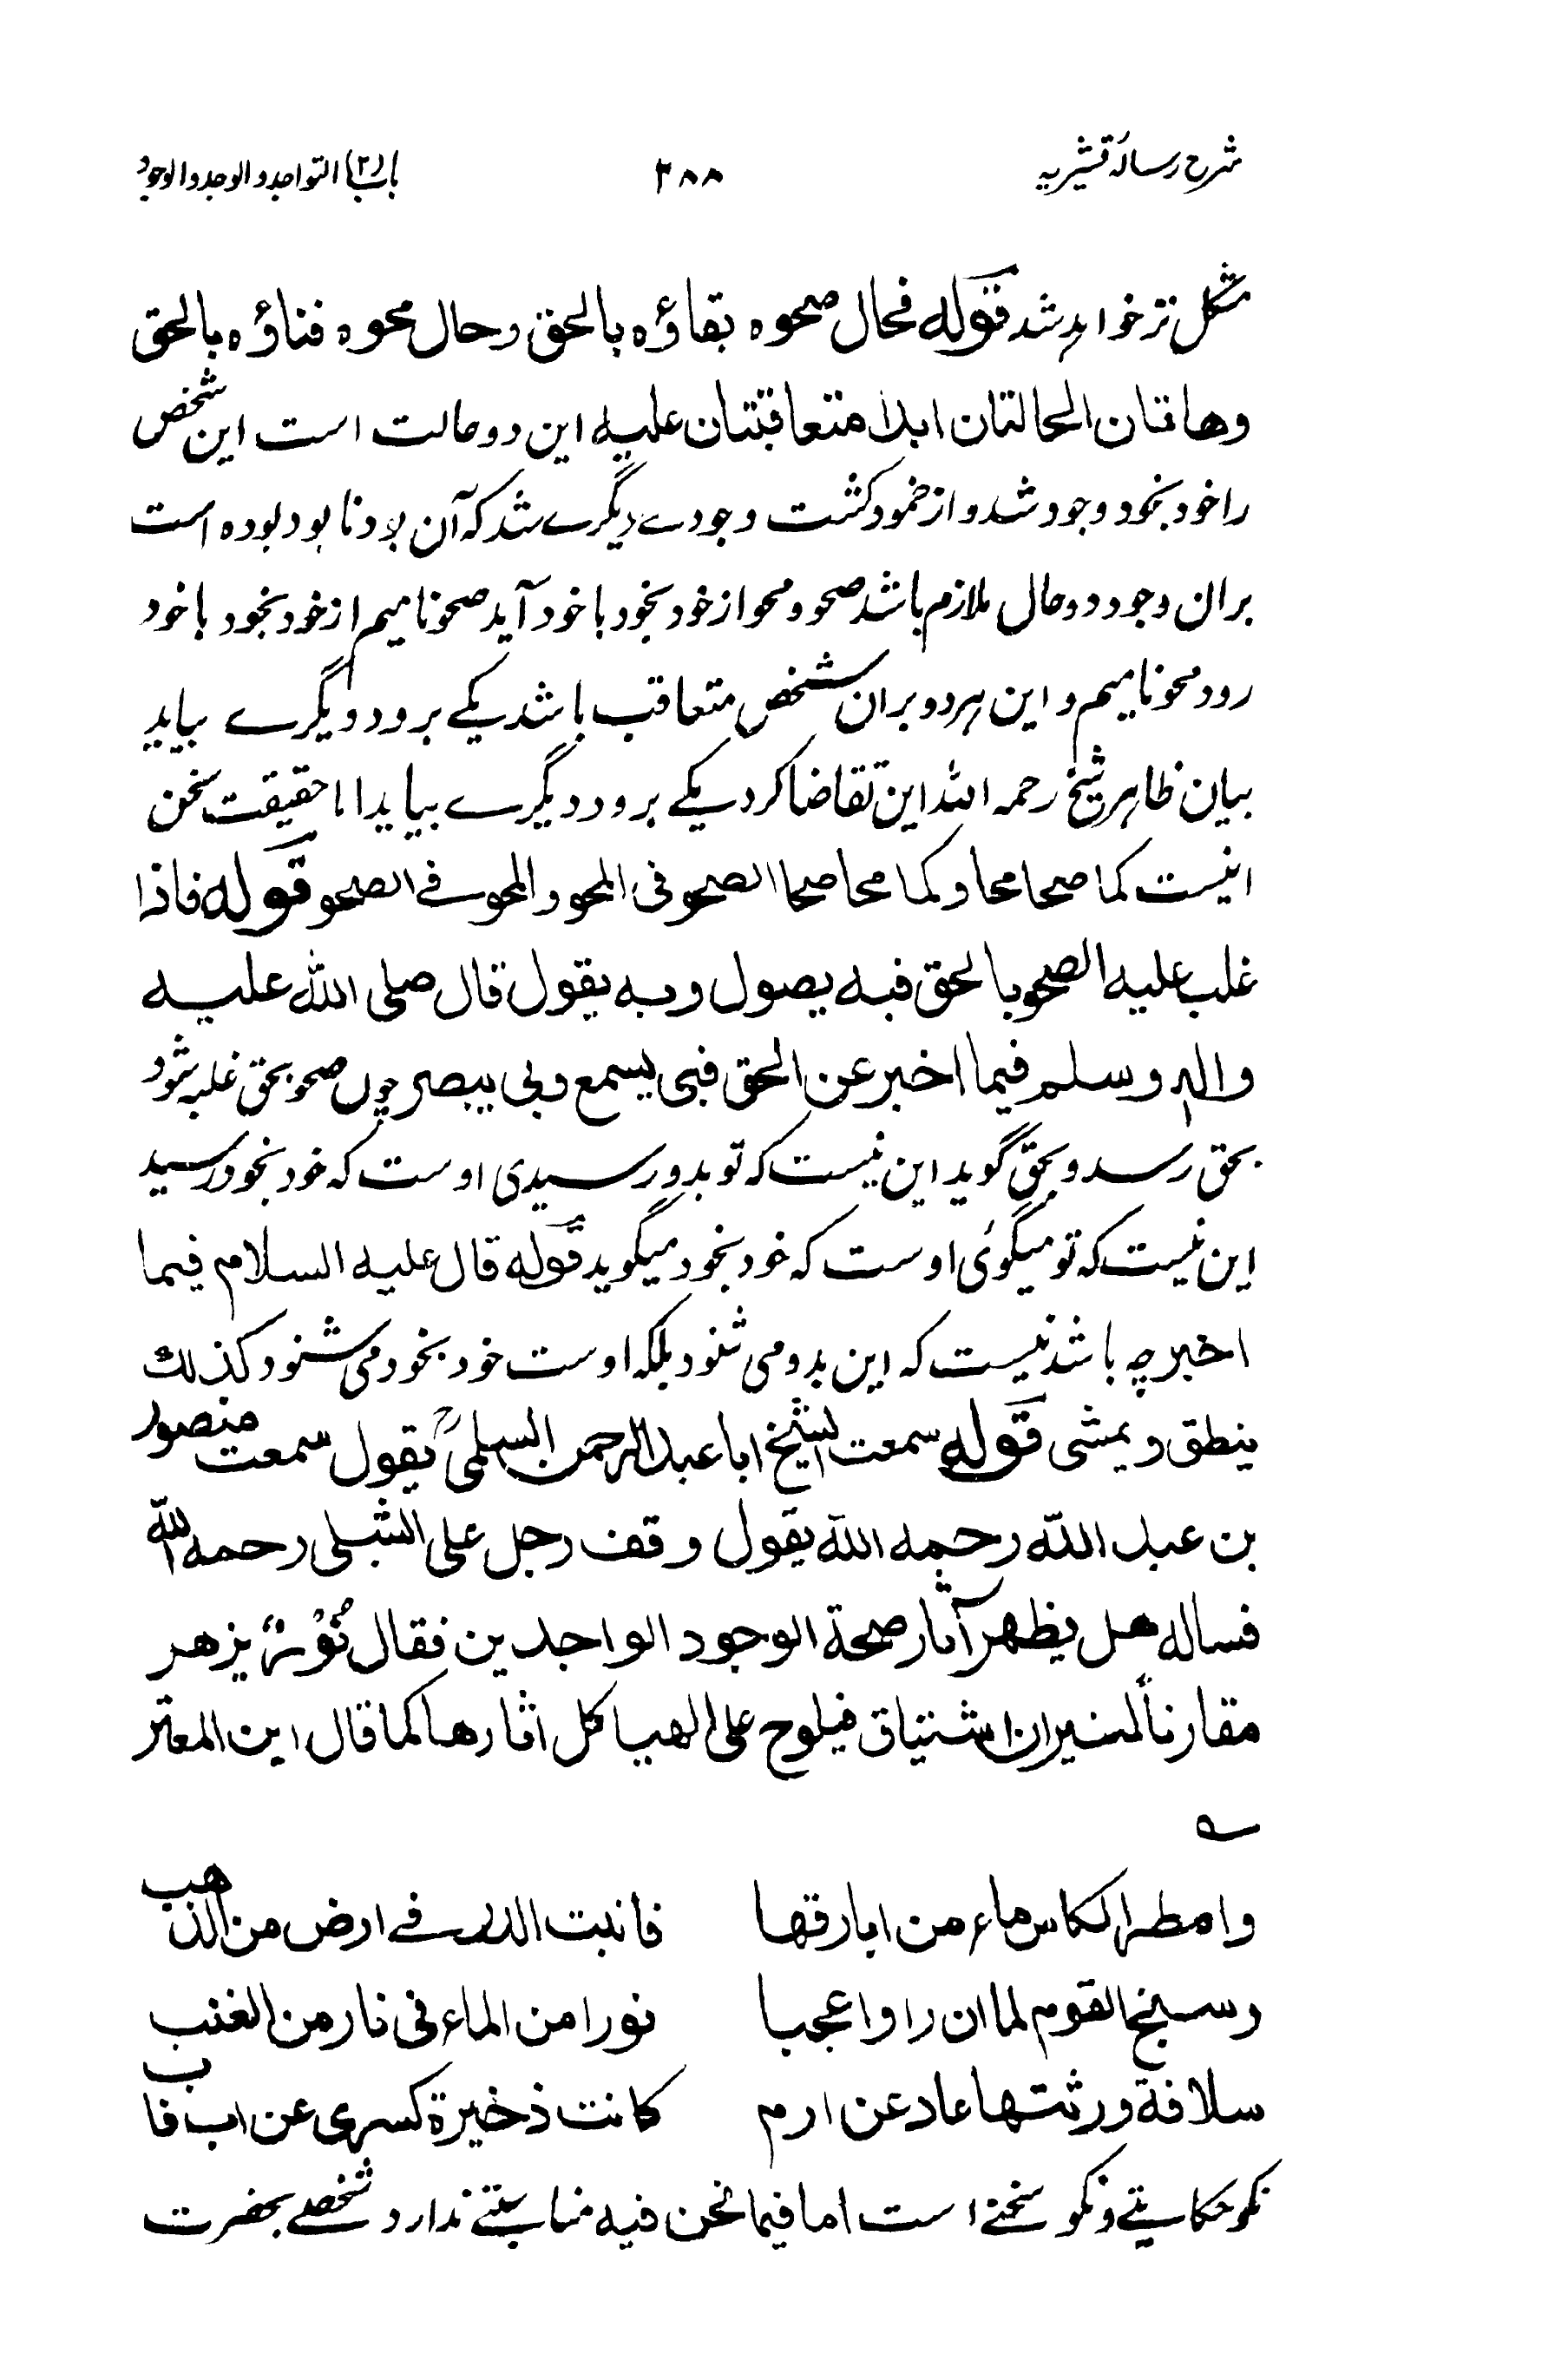 شرح رسالہ قشیریہ
۲۸۸
باب (۲) التواجد والوجد والوجود
مشکل تر خواہد شد قوله فحال صحوه بقاؤه بالحق وحال محوه فناؤه بالحق
وهاتان الحالتان ابدا متعاقبتان علیه این دو حالت است این شخص
را خود بخود وجود شد و از خود گشت وجودے دیگرے شد کہ آن بود نابود بوده است
بران وجود دو حال ملازم باشد صحو و محو از خود بخود باخود آید صحو نامیم از خود بخود باخود
رود محو نامیم و این ہر دو بران شخص متعاقب باشد یکے برود دیگرے بیاید
بیان ظاہر شیخ رحمہ اللہ این تقاضا کرد یکے برود دیگرے بیاید اما حقیقت سخن
اینست کما صحا محا وکما محا صحا الصحو فی المحو والمحو فے الصحو قوله فاذا
غلب علیه الصحو بالحق فبه یصول وبه یقول قال صلی الله علیه
واله وسلم فیما اخبر عن الحق فبی یسمع وبی یبصر چوں صحو بحق غلبہ شود
بحق رسد و بحق گوید این نیست کہ تو بدو رسیدی اوست کہ خود بخود رسید
این نیست کہ تو میگوئی اوست کہ خود بخود میگوید قوله قال علیه السلام فیما
اخبر چہ باشد نیست کہ این بدو می شنود بلکہ اوست خود بخود می شنود کذلك
ینطق ویمشی قوله سمعت الشیخ ابا عبد الرحمن السلمیؒ یقول سمعت منصور
بن عبد الله رحمه الله یقول وقف رجل علی الشبلی رحمه الله
فساله هل یظهر آثار صحة الوجود الواجدین فقال نُوْرٌ یزهر
مقارناً لنیران اشتیاق فیلوح علی الهیاکل اثارها کما قال ابن المعتز
؎
وامطر الکاس ماء من ابارقها فانبت الدر فے ارض من الذهب
وسبح القوم لما ان راوا عجبا نورا من الماء فی نار من العنب
سلافة ورثتها عاد عن ارم کانت ذخیرة کسری عن اب فاب
نکو حکایتے و نکو سخنے است اما فیما نحن فیه مناسبتے ندارد شخصے بحضرت